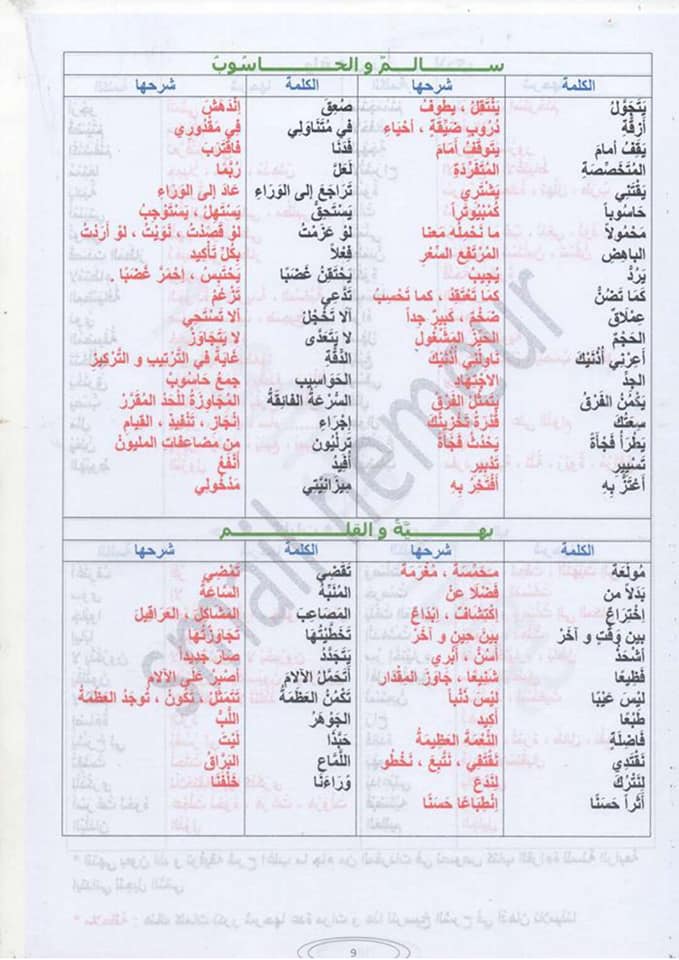 سـالـم و الحـاسوب
الكلمة شرحها الكلمة شرحها
يَتَجَوَّلُ يَتَنَقَّلُ ، يطوفُ صُعِقَ اِنْدَهَشَ
أزقَّةِ دُرُوبٍ ضَيِّقَةٍ ، أحْيَاءِ في مُتَنَاوَلِي فِي مَقْدُورِي
يَقِفُ أمامَ يَتَوَقَّفُ أمَامَ فَدَنَا فَاقْتَرَبَ
المُتَخَصِّصَةِ المُتَفَرِّدَةِ لَعَلَّ رُبَّمَا
يَقْتَنِي يَشْتَرِي تَرَاجَعَ إلى الوَرَاءِ عَادَ إلى الوَرَاءِ
حَاسُوباً كُمْبْيُوتَراً يَسْتَحِقُّ يَسْتَهِلُ ، يَسْتَوْجِبُ
مَحْمُولاً ما نَحْمِلُهُ معنا لَوْ عَزَمْتُ لوْ قَصَدْتُ ، نَوَيْتُ ، لوْ أرَدْتُ
الباهِضِ المُرْتَفِعِ السِّعْرِ فِعْلاً بِكُلِّ تَأكيدٍ
يَرُدُّ يُجِيبُ يَحْتَقِنُ غَضَبًا يَحْتَبِسُ ، اِحْمَرَّ غَضَبًا .
كَمَا تَضُنُّ كَمَا تَعْتَقِدُ ، كما تَحْسِبُ تَدَّعِي تَزْعُمُ
عِمْلاَقٌ ضَخْمٌ ، كَبِيرٌ جِداً ألاَ تَخْجَلُ ألاَ تَسْتَحِي
الحَجْمِ الحَيِّزِ المَشْغُولِ لا يَتَعَدَّى لا يَتَجَاوَزُ
أعِرْنِي أُذُنَيْكَ نَاوِلْنِي أُذُنَيْكَ الدِّقَّةِ غَايَةٌ في التَّرْتِيبِ و التَّرْكِيزِ
الجِدُّ الاجْتِهَادُ الحَوَاسِيبِ جمعُ حَاسُوبٍ
يَكْمُنُ الفَرْقُ يَتَمَثَّلُ الفَرْقُ السُّرْعَةُ الفَائِقَةُ المُجَاوَزَةُ للْحَدِّ المُقَرَّرِ
سِعَتُكَ قُدْرَةُ تَخْزِينِكَ إجْرَاءِ إنْجَازِ ، تَنْفِيذِ ، القِيَامِ
يَطْرَأُ فَجْأةً يَحْدُثُ فَجْأةً ترلْيُون من مضاعفات المليون
تَسْيِيرِ تَدْبِيرِ أُفِيدُ أنْفَعُ
أعْتَزُّ بِهِ أفْتَخِرُ بِهِ مِيزَانِيَّتِي مَدْخُولِي
بهـيَّة و القلـم
الكلمة شرحها الكلمة شرحها
مُولَعَةٌ مُتَحَمِّسَةٌ ، مُغْرَمَةٌ تَقْضِي تُمْضِي
بَدَلاً من فَضْلاً عنْ المُنَبِّهُ السَّاعَةُ
اِخْتِرَاعُ اِكْتِشَافُ ، إبْدَاعُ المَصَاعِبَ المَشَاكِلَ ، العَرَاقِيلَ
بين وَقْتٍ و آخَرَ بينَ حينٍ و آخَرَ تَخَطَّيْتُهَا تَجَاوَزْتُهَا
أشْحَذُ أسُنُّ ، أبْرِي يَتَجَدَّدُ صارَ جَديداً
فَظِيعًا شَنِيعًا ، جَاوَزَ المِقْدَار أتَحَمَّلُ الآلامَ أصْبِرُ عَلَى الآلامِ
ليْسَ عَيْبًا لَيْسَ ذَنْباً تَكْمُنُ العَظَمَةُ تَتَمَثَّلُ ، تَكُونُ ، تُوجَدُ العظمَةُ
طَبْعًا أكِيد الجَوْهَرُ اللُّبُّ
فَاضِلَةٍ النِّعْمَةُ العَظِيمَةُ حَبَّذَا لَيْتَ
نَقْتَدِي نَقْتَفِي ، نَتَّبِعُ ، نَخْطُو اللَّمَّاع البَرَّاق
لِنَتْرُكَ لِنَدَعَ وَرَاءَنَا خَلْفَنَا
أثَراً حَسَنًا اِنْطِبَاعًا حَسَنًا
smail nemeur
9